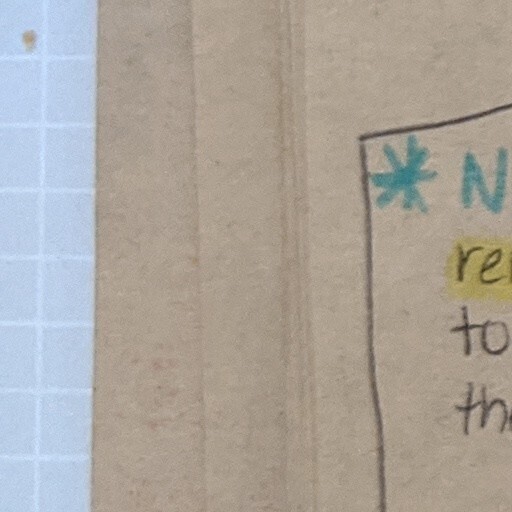 * N
re
to
th